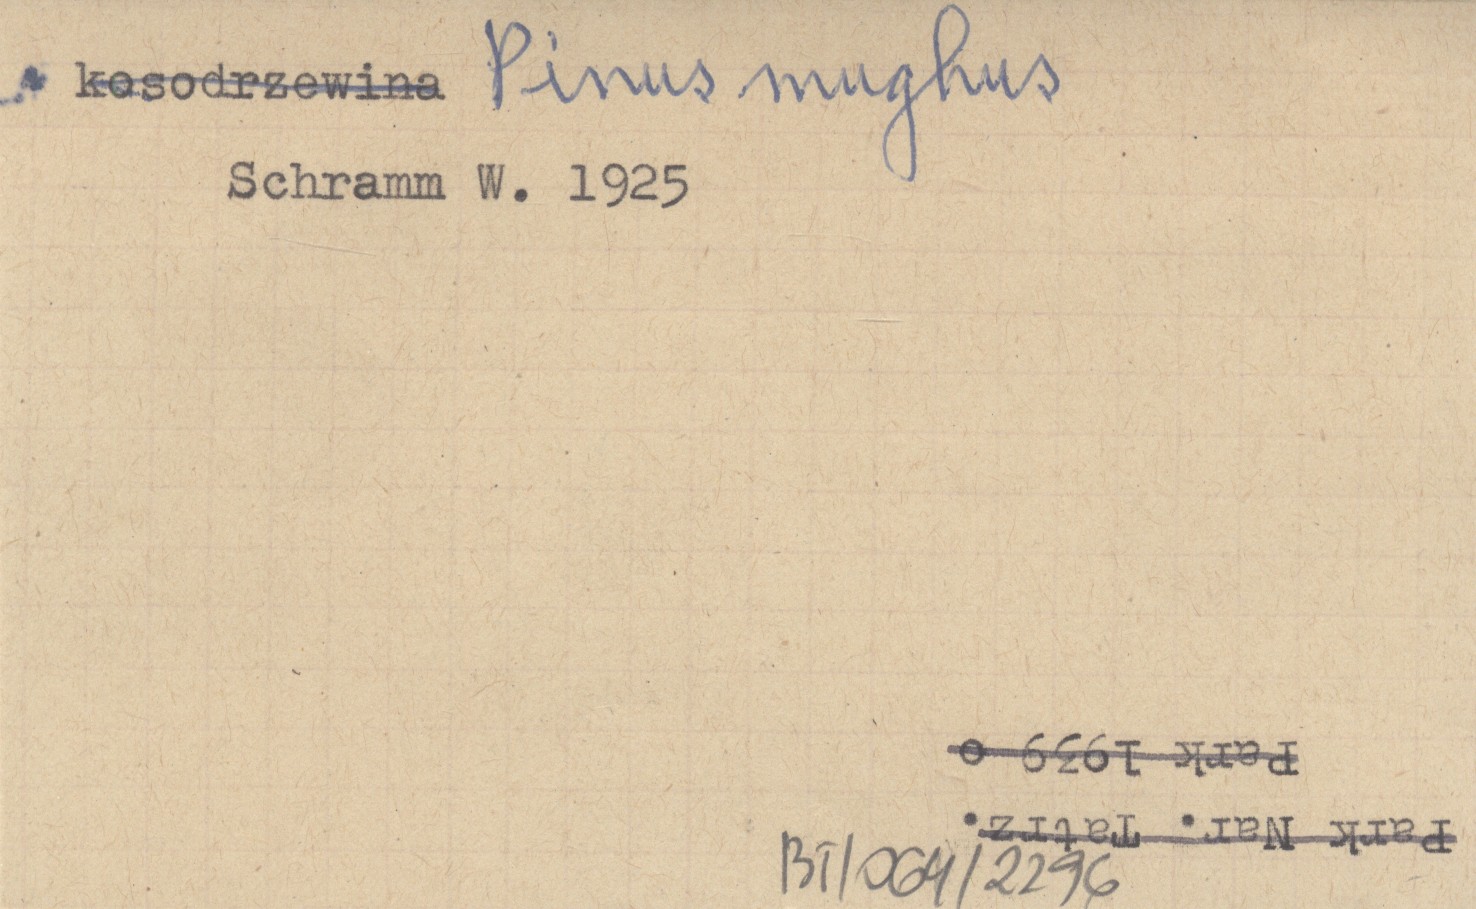 kosodrzewina Pinus mughus
Schramm W. 1925
Park Nar. Tatrz.
Park 1939 o
BT/064/2296